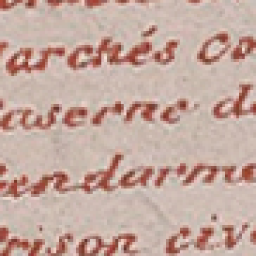 archés Co
aserne d
endarme
rison civ